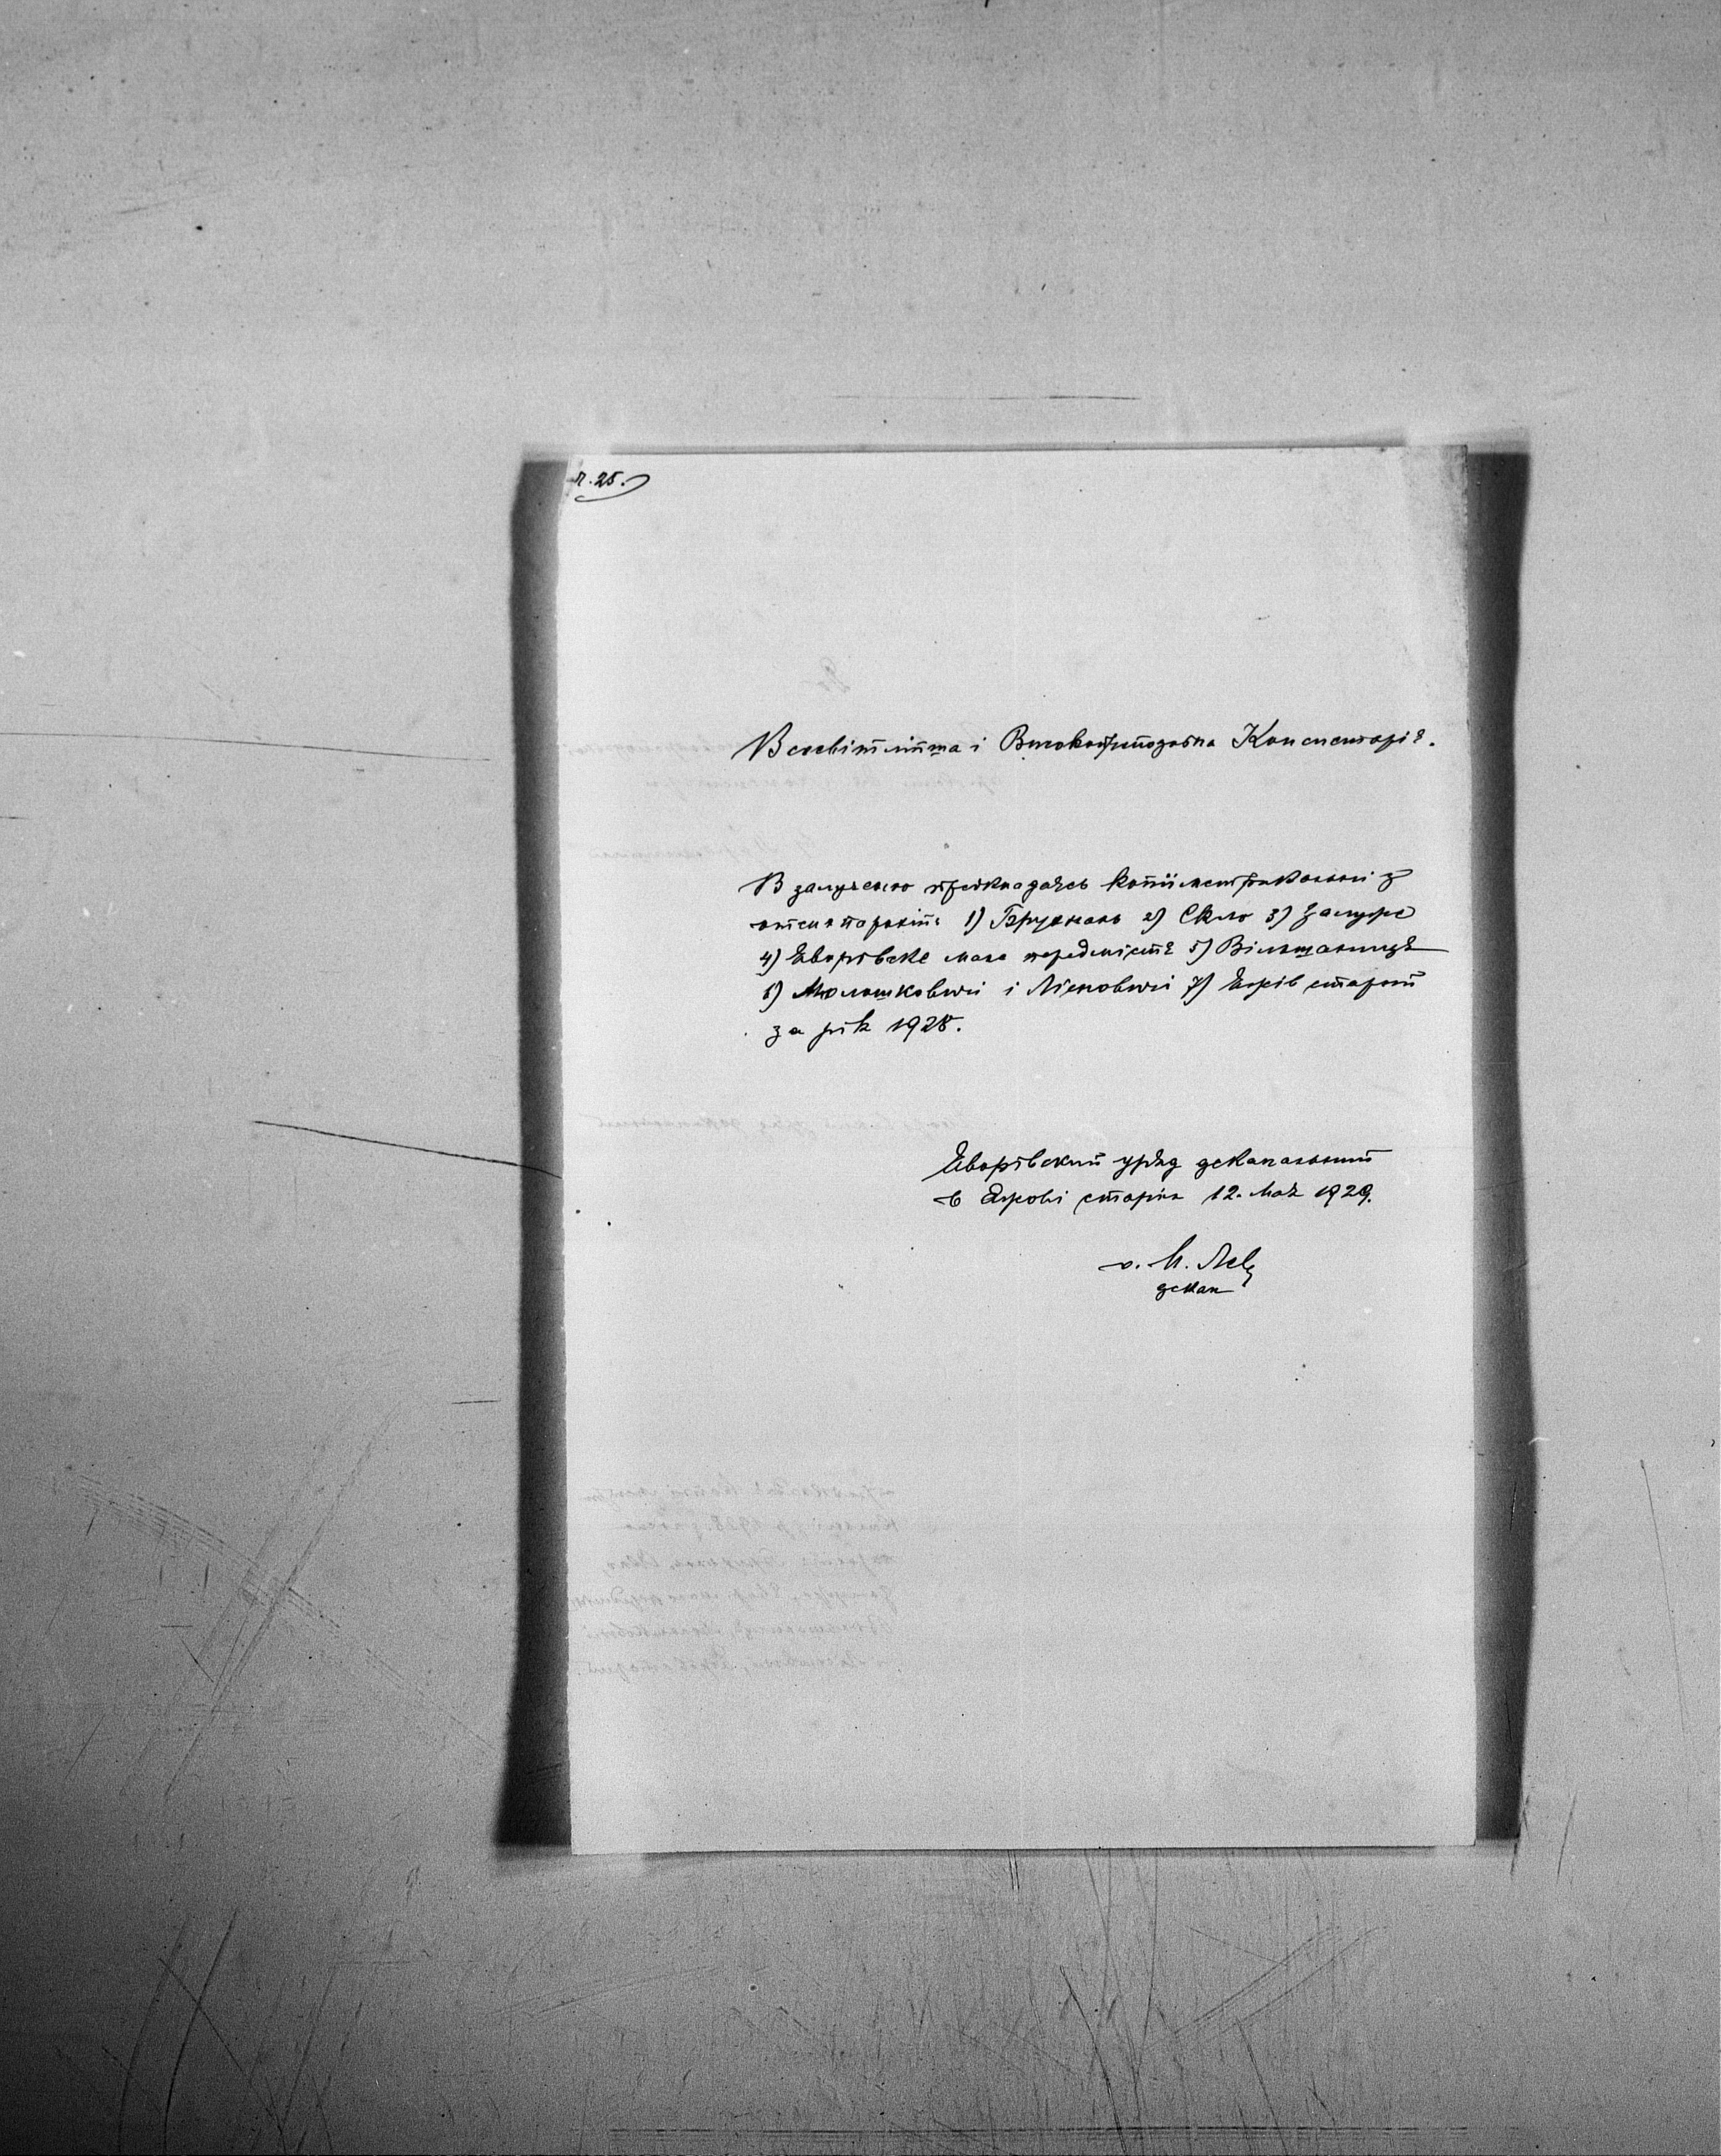 ч. 25.
Всесвітліша і Високопреподобна Консисторіє.
В залученю предкладаєсь копії метрикальні з
отсих парохій: 1) Бруxналь 2) Скло 3) Залуже
4) Яворівске мале передмістя 5) Вільшаниця
6) Молошковичі і Лісновичі 7) Яжів старий
за рік 1928.
Яворівский уряд деканальний
в Яжові старім 12. мая 1929.
о. М. Лев
декан